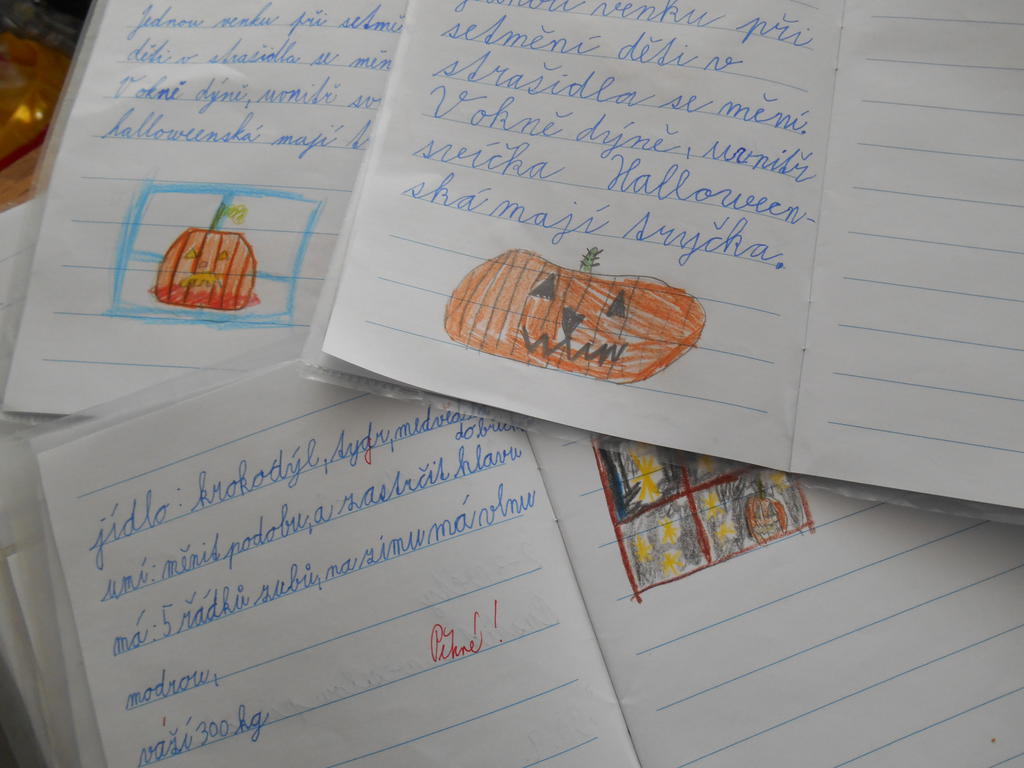 Jednou venku při setmě
děti v strašidla se měn
V okně dýně, uvnitř sv
halloweenská mají t
venku při
setmění děti v
strašidla se mění.
V okně dýně, uvnitř
svíčka Halloween-
ská mají tryčka.
jídlo: krokodýl, tygr, medvěd
umí: měnit podobu, a zastrčit hlavu
má: 5 řádků zubů, na zimu má vlnu
modrou,
váží 300 kg
Pěkné!